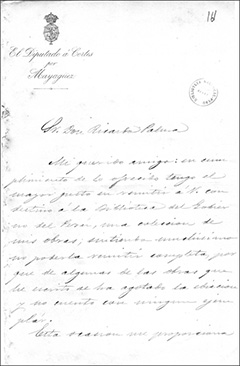 El Diputado á Cortes
por
Mayagüez
Sr. Don Ricardo Palma
Mi querido amigo: en cum
plimiento de lo ofrecido tengo el
mayor gusto en remitir á V. con
destino á la biblioteca del Gobier
no del Perú, una coleccion de
mis obras; sintiendo muchísimo
no poderla remitir completa, por
que de algunas de las obras que
he escrito se ha agotado la edicion
y no cuento con ningun ejem
plar.
Esta ocasion me proporciona